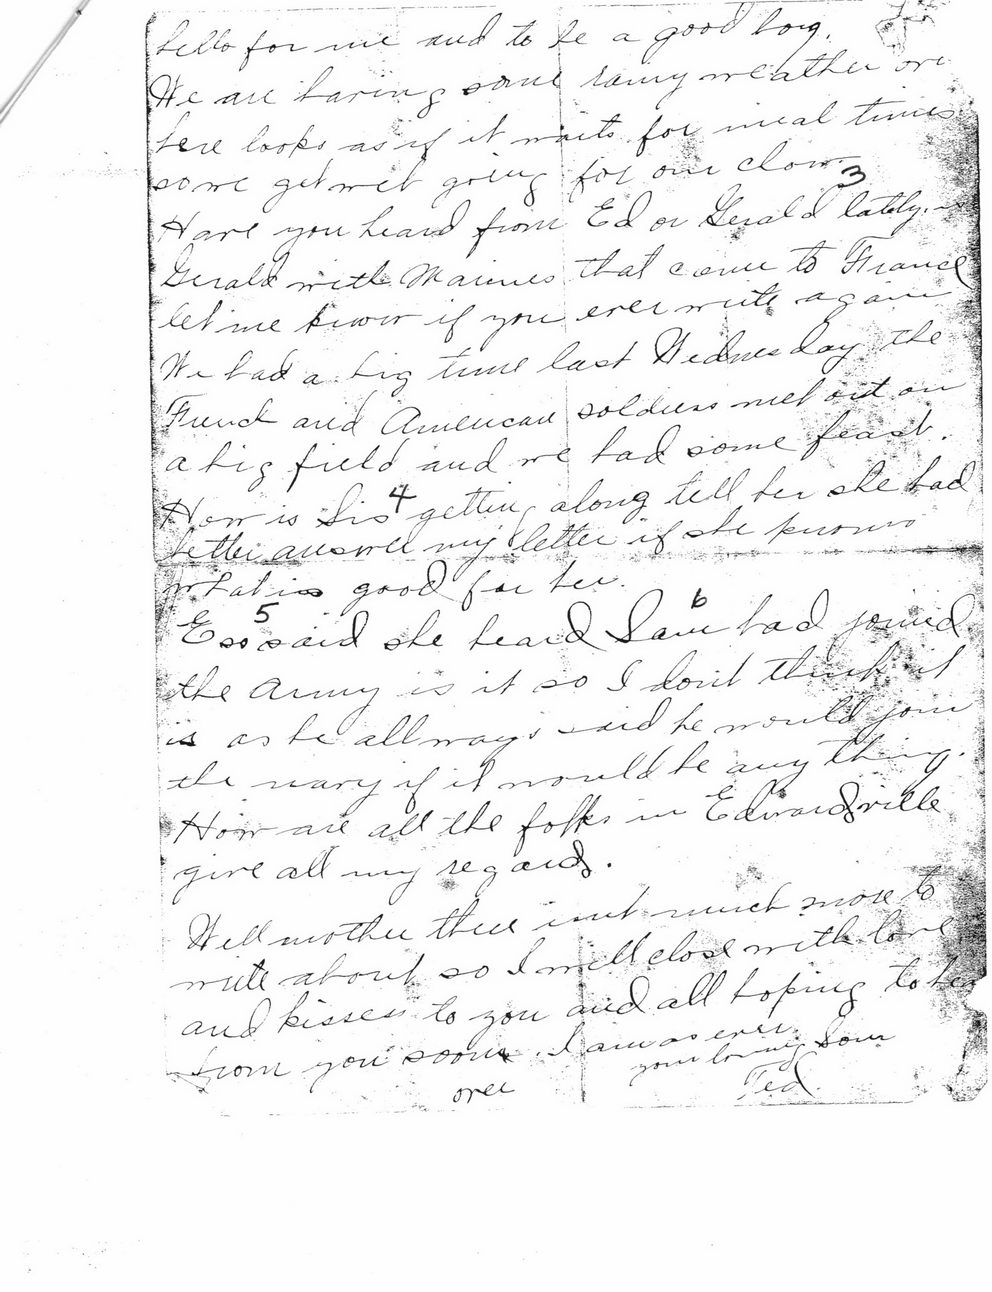 hello for me and to be a good boy.
We are having some rainy weather over
here looks as if it waits for meal times
so we get wet going for our chow.
Have you heard from Ed or Gerald 3 lately. is
Gerald with Marines that come to France
let me know if you ever write again
We had a big time last Wednesday the
French and American soldiers met out on
a big field and we had some feast.
How is Sis 4 getting along tell her she had
better answer my letter if she knows
what is good for her.
Eso 5 said she heard Sam 6 had joined
the Army is it so I dont think it
is as he allways said he would join
the navy if it would be any thing.
How are all the folks in Edwardsville
give all my regards.
Well mother there isnt much more to
write about so I will close with love
and kisses to you and all hoping to hear
from you soon. I am as ever
your loving Son
over Ted.